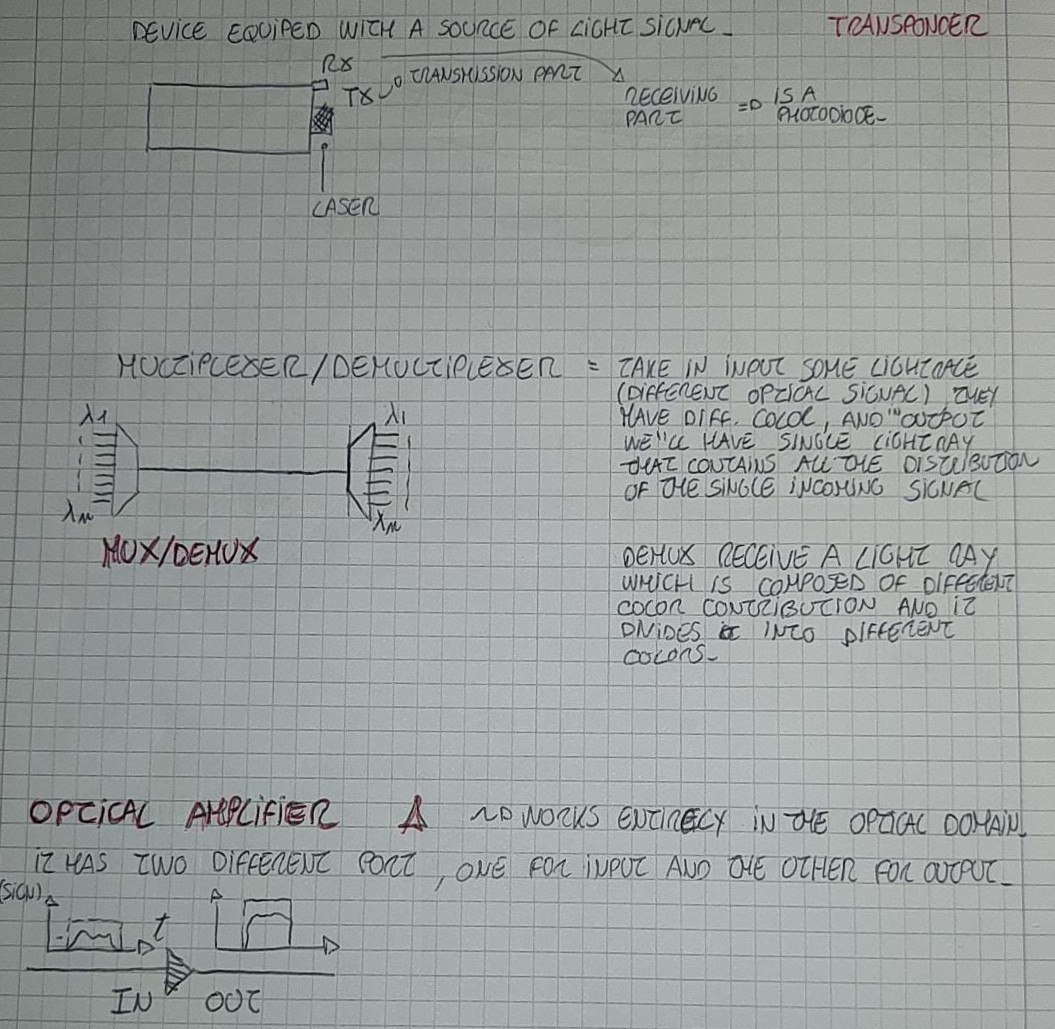 DEVICE EQUIPED WITH A SOURCE OF LIGHT SIGNAL_ TRANSPONDER
RX
TX TRANSMISSION PART
RECEIVING PART => IS A PHOTODIODE_
LASER
MULTIPLEXER/DEMULTIPLEXER = TAKE IN INPUT SOME LIGHT
(DIFFERENT OPTICAL SIGNAL) THEY
HAVE DIFF. COLOR, AND "OUTPUT
WE'LL HAVE SINGLE LIGHT RAY
THAT CONTAINS ALL THE DISTRIBUTION
OF THE SINGLE INCOMING SIGNAL
λ1 λ1
λn λn
MUX/DEMUX
DEMUX RECEIVE A LIGHT RAY
WHICH IS COMPOSED OF DIFFERENT
COLOR CONTRIBUTION AND IT
DIVIDES IT INTO DIFFERENT
COLORS_
OPTICAL AMPLIFIER WORKS ENTIRELY IN THE OPTICAL DOMAIN.
IT HAS TWO DIFFERENT PORT, ONE FOR INPUT AND THE OTHER FOR OUTPUT_
(SIGN) t
IN OUT